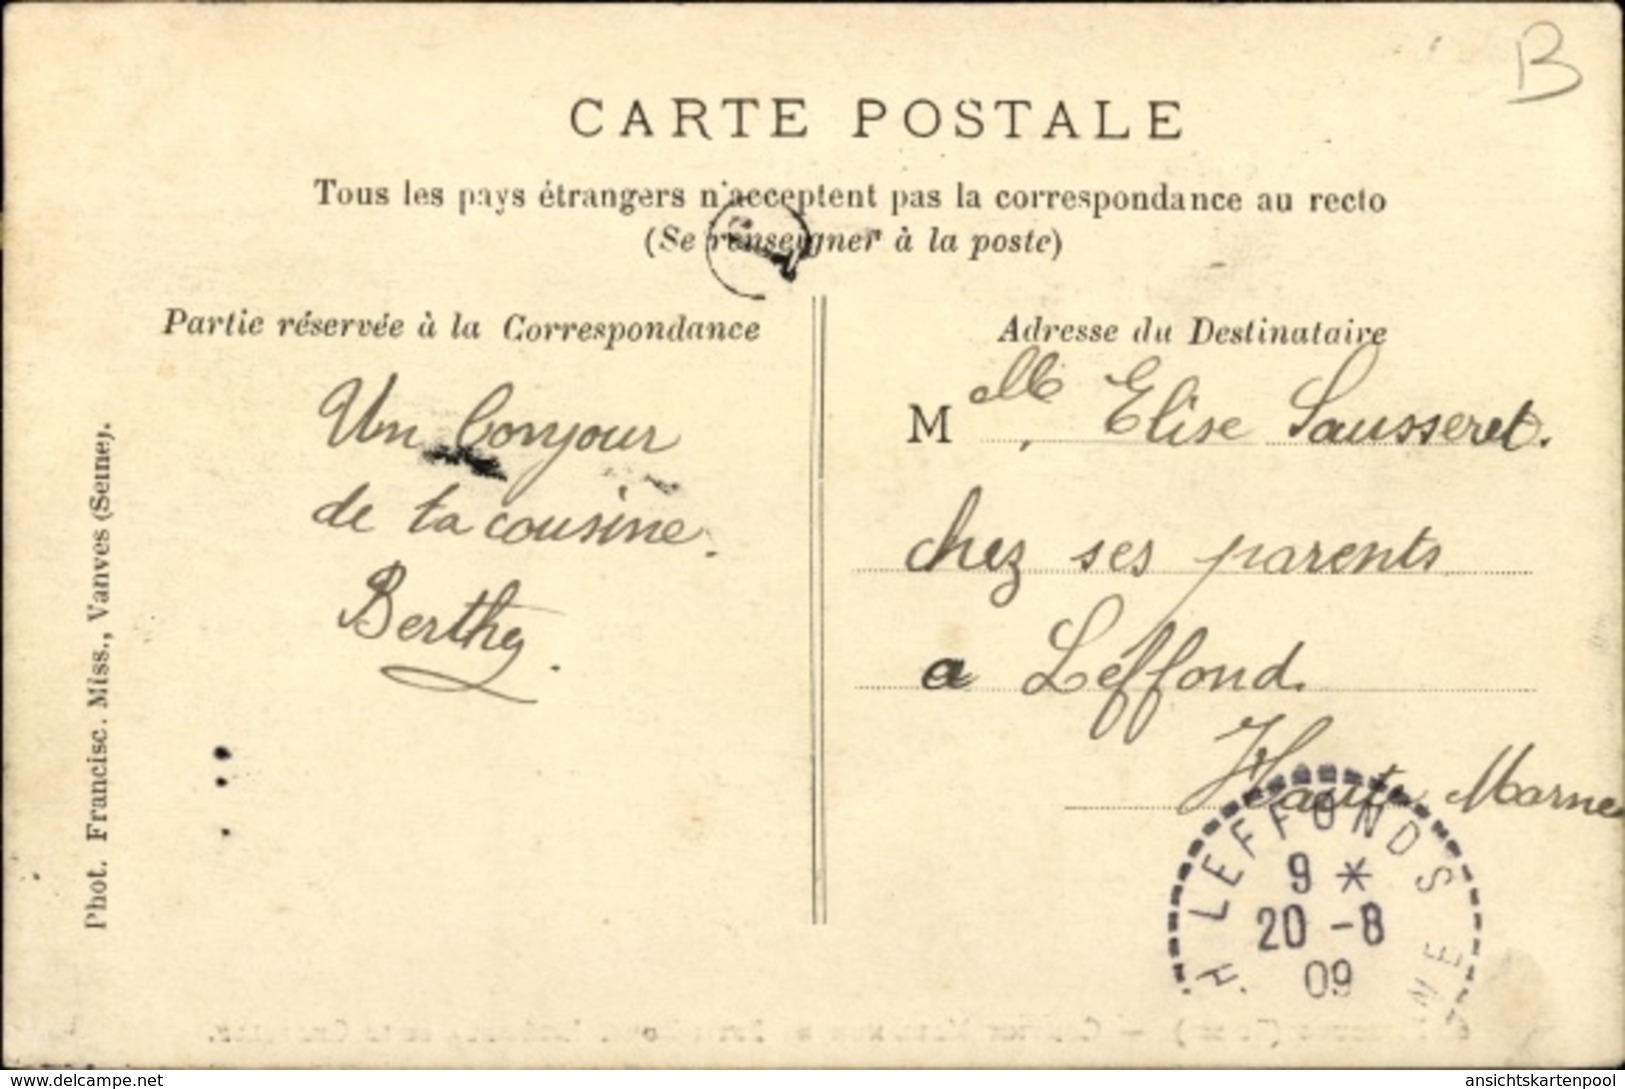 B
CARTE POSTALE
Tous les pays étrangers n'acceptent pas la correspondance au recto
(Se renseigner à la poste)
Partie réservée à la Correspondance
Adresse du Destinataire
Un bonjour
de ta cousine.
Berthe.
Mlle Elise Sausseret.
chez ses parents
a Leffond.
Haute Marne
LEFFONDS
9 *
20 -8
09
H
NE
Phot. Francisc. Miss., Vanves (Seine).
www.delcampe.net
ansichtskartenpool